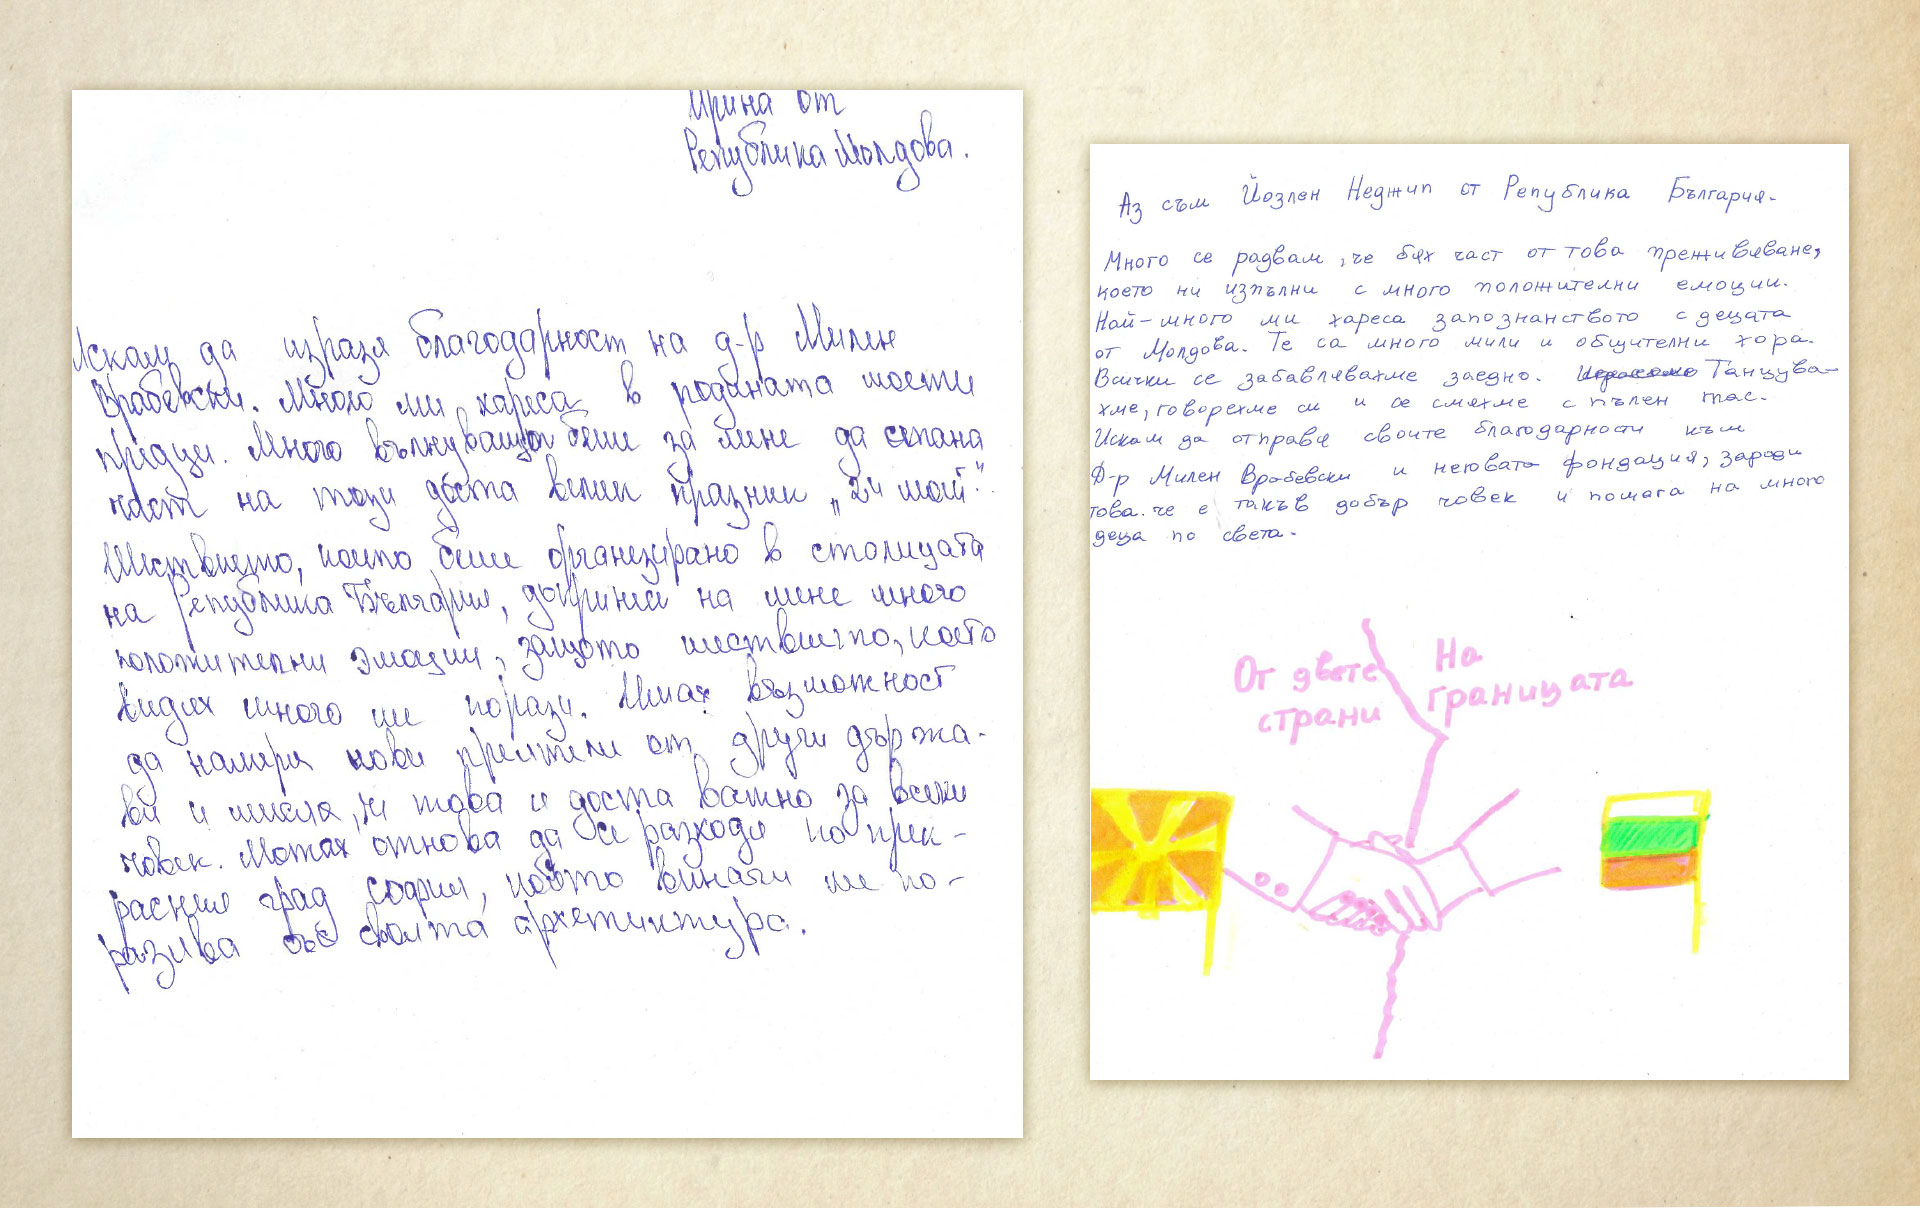 Ирина от
Република Молдова.
Искам да изразя благодарност на д-р Милен
Врабевски. Много ми хареса в родината моети
предци. Много вълнуващо беше за мене да стана
част на този доста велик празник „24 май".
Шествието, което беше организирано в столицата
на Република България, донринесе на мене много
положителни эмоции, защото шествието, което
видях много ме порази. Имах възможност
да намеря нови приятели от други държа-
ви и мисля, че това е доста важно за всеки
човек. Можах отнова да се разходя по прек-
расния град София, който винаги ме по-
разява със своята архетиктура.
Аз съм Йозлен Неджип от Република България.
Много се радвам, че бях част от това преживяване,
което ни изпълни с много положителни емоции.
Най-много ми хареса запознанството с децата
от Молдова. Те са много мили и общителни хора.
Всички се забавлявахме заедно. Танцува-
хме, говорехме си и се смяхме с пълен глас.
Искам да отправя своите благодарности към
Д-р Милен Врабевски и неговата фондация, заради
това. че е такъв добър човек и помага на много
деца по света.
От двете
страни
На
границата